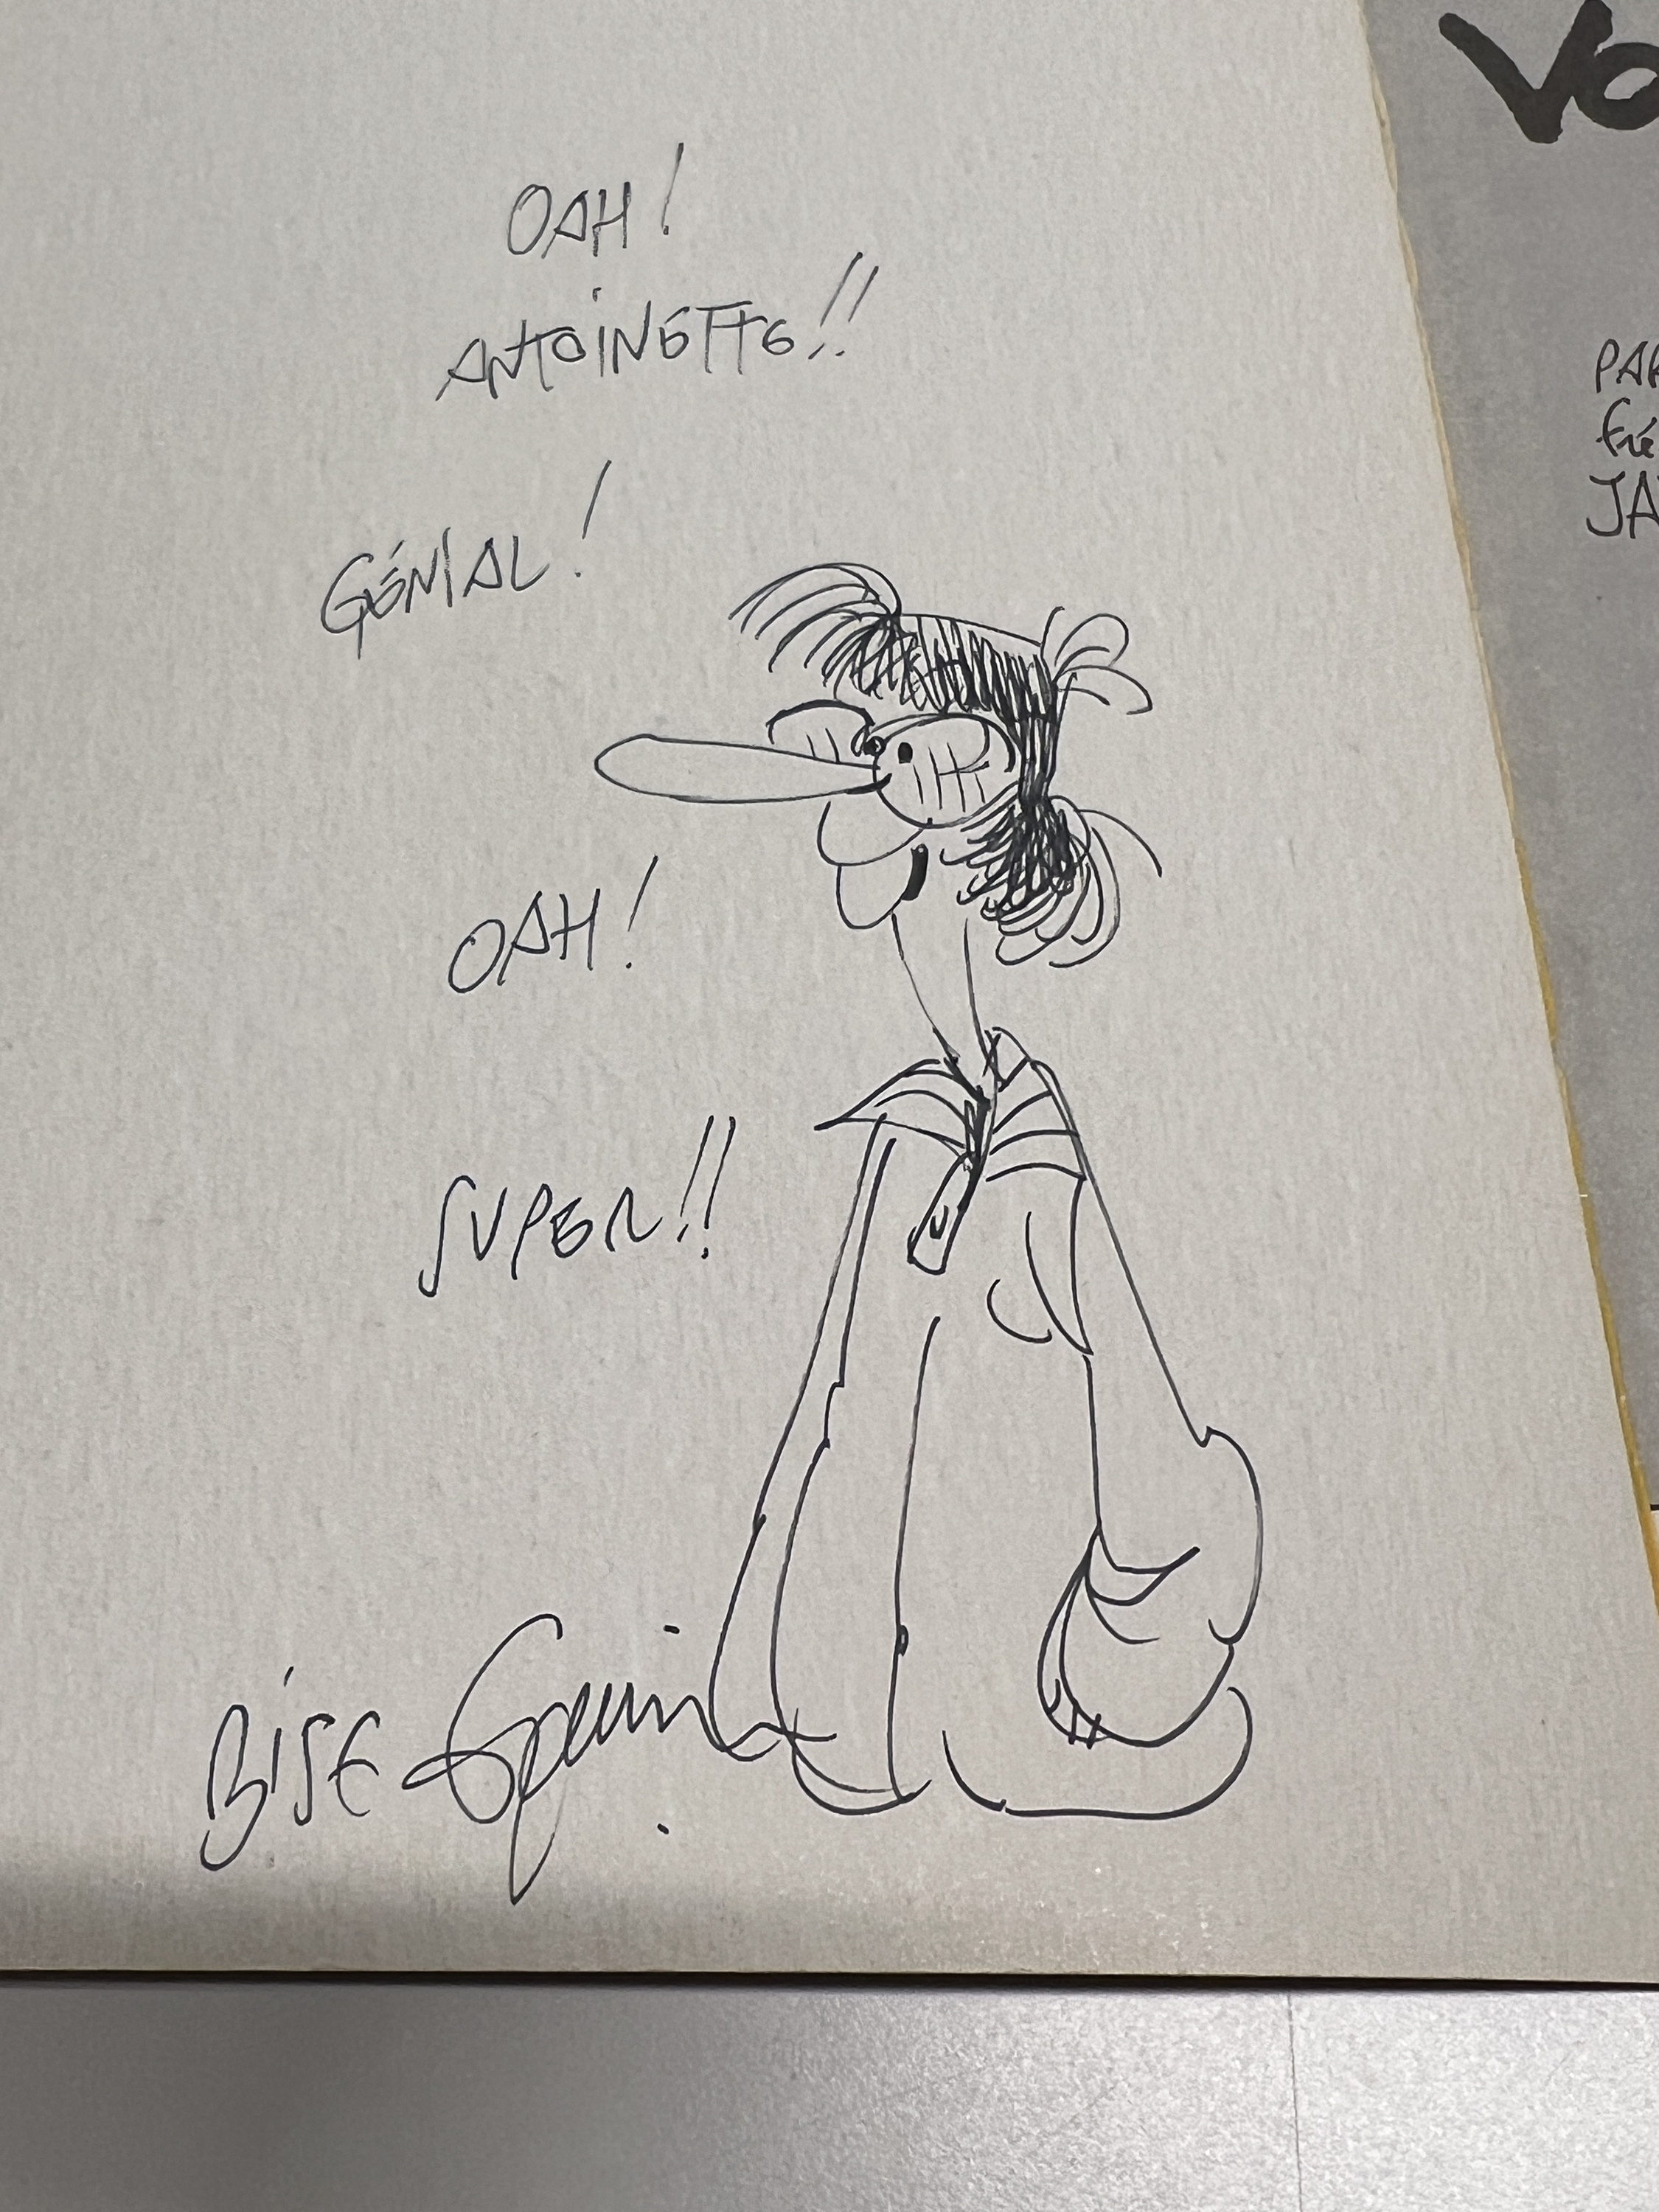 OAH !
ANTOINETTE !!
GÉNIAL !
OAH !
SUPER !!
BISE
VO
PAR
fré
JA